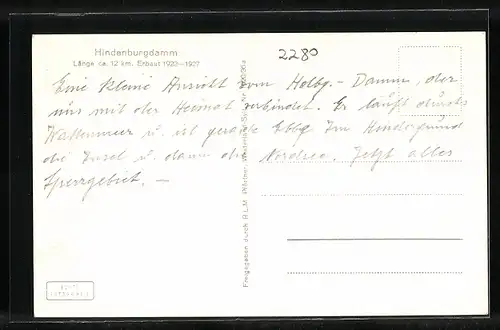 Hindenburgdamm
Länge ca. 12 km. Erbaut 1923–1927
2280
Eine kleine Ansicht vom Hdbg.-Damm, der
uns mit der Heimat verbindet. Er läuft durchs
Wattenmeer u. ist gerade Ebbe. Im Hindergrund
die Insel u. dann die Nordsee. Jetzt alles
Sperrgebiet. —
Freigegeben durch R.L.M.